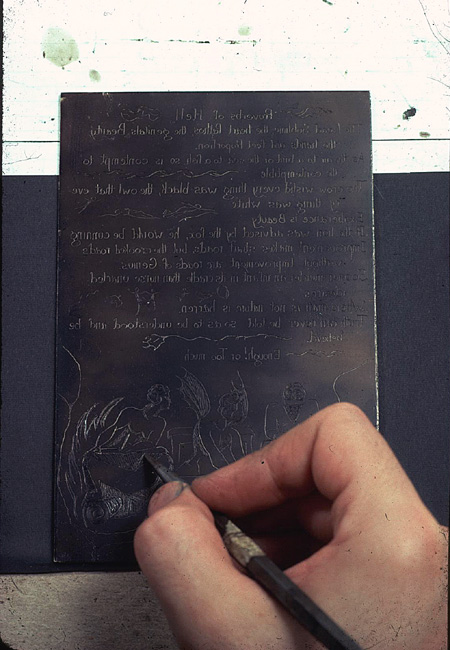 Proverbs of Hell
Sublime, the heart Pathos, the genitals Beauty
the hands and feet Proportion.
to a bird or the sea to a fish so is contempt to
the contemptible
wishd every thing was black, the owl that eve
ry thing was white
Exuberance is Beauty
lion was advised by the fox, he would be cunning
makes strait roads, but the crooked roads
without Improvement are roads of Genius
murder an infant in its cradle than nurse unacted
desires
man is not nature is barren
Truth can never be told so as to be understood and be
believ'd
Enough! or Too much